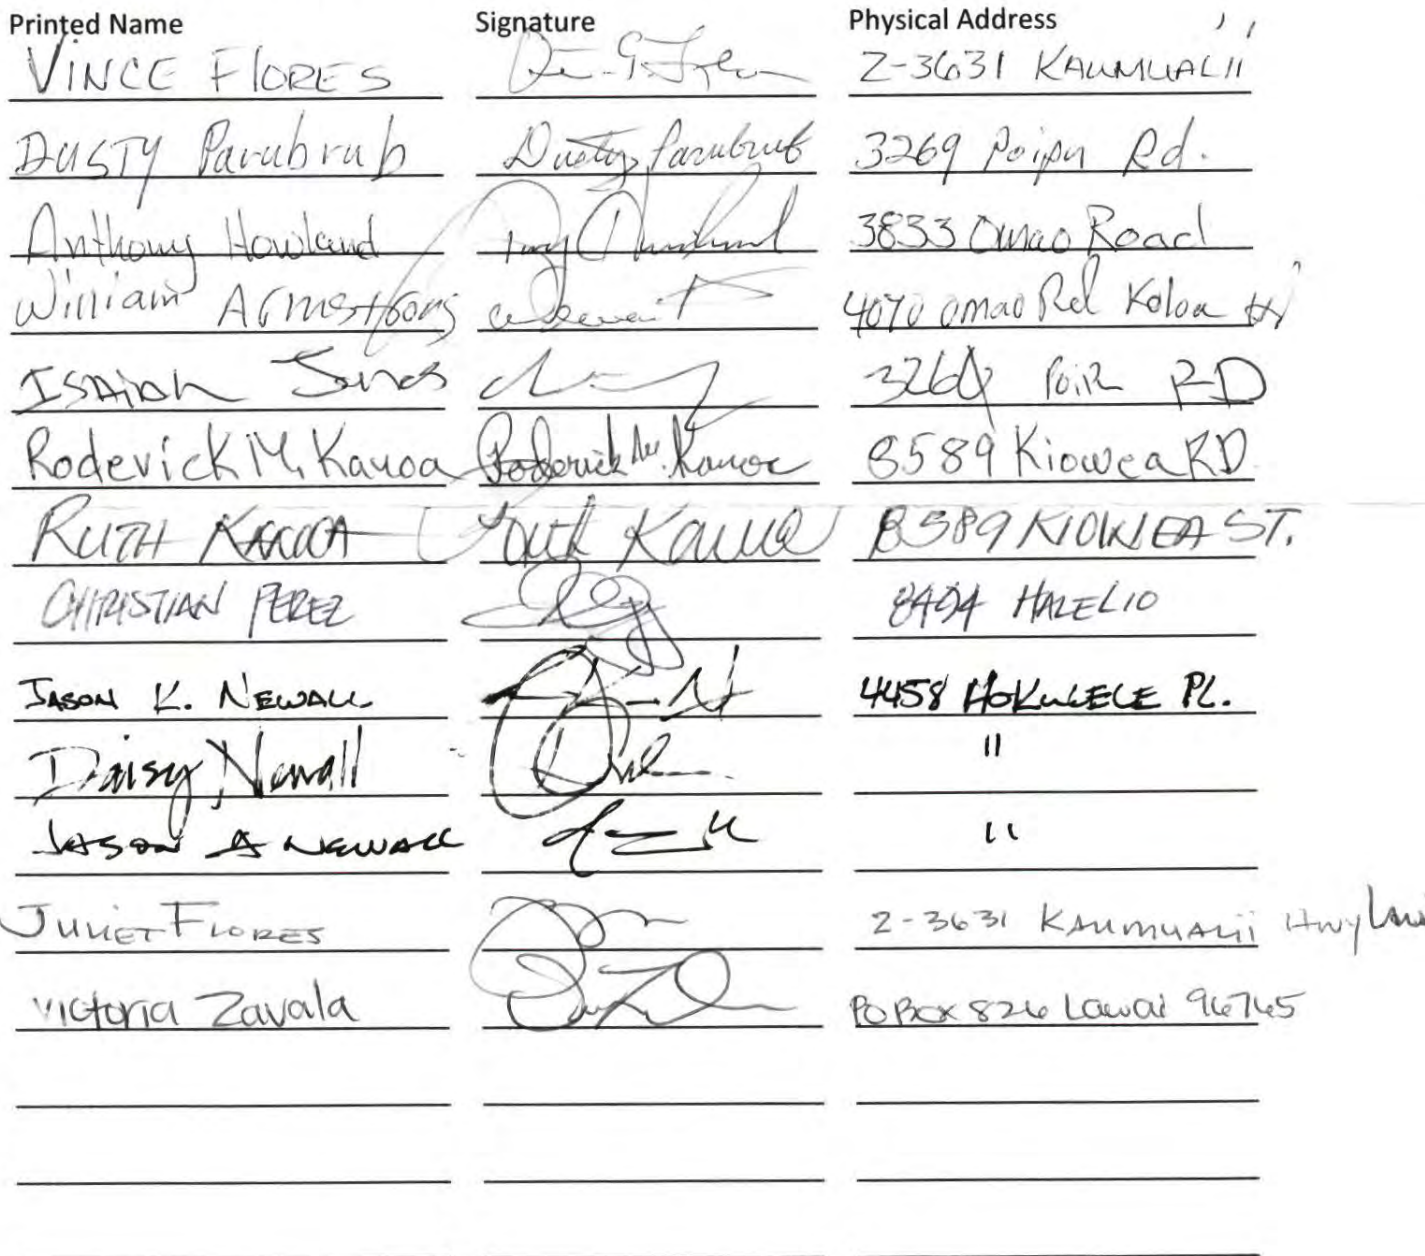 Printed Name Signature Physical Address
VINCE FLORES 2-3631 KAUMUALII
DUSTY Parubrub Dusty Parubrub 3269 Poipu Rd.
Anthony Howland 3833 Omao Road
William Armstrong 4070 omao Rd Koloa HI
ISAIAH Jones RD
Roderick M. Kauoa Roderick M. Kauoa 8589 Kiowea RD
RUTH Ruth 8589 KIOWEA ST.
CHRISTIAN PEREZ 8494 HALELIO
JASON K. NEWALL 4458 HOKULELE PL.
Daisy Newall "
JASON A NEWALL "
JULIET FLORES 2-3631 KAUMUALII Hwy Lawai
Victoria Zavala PO BOX 826 Lawai 96765